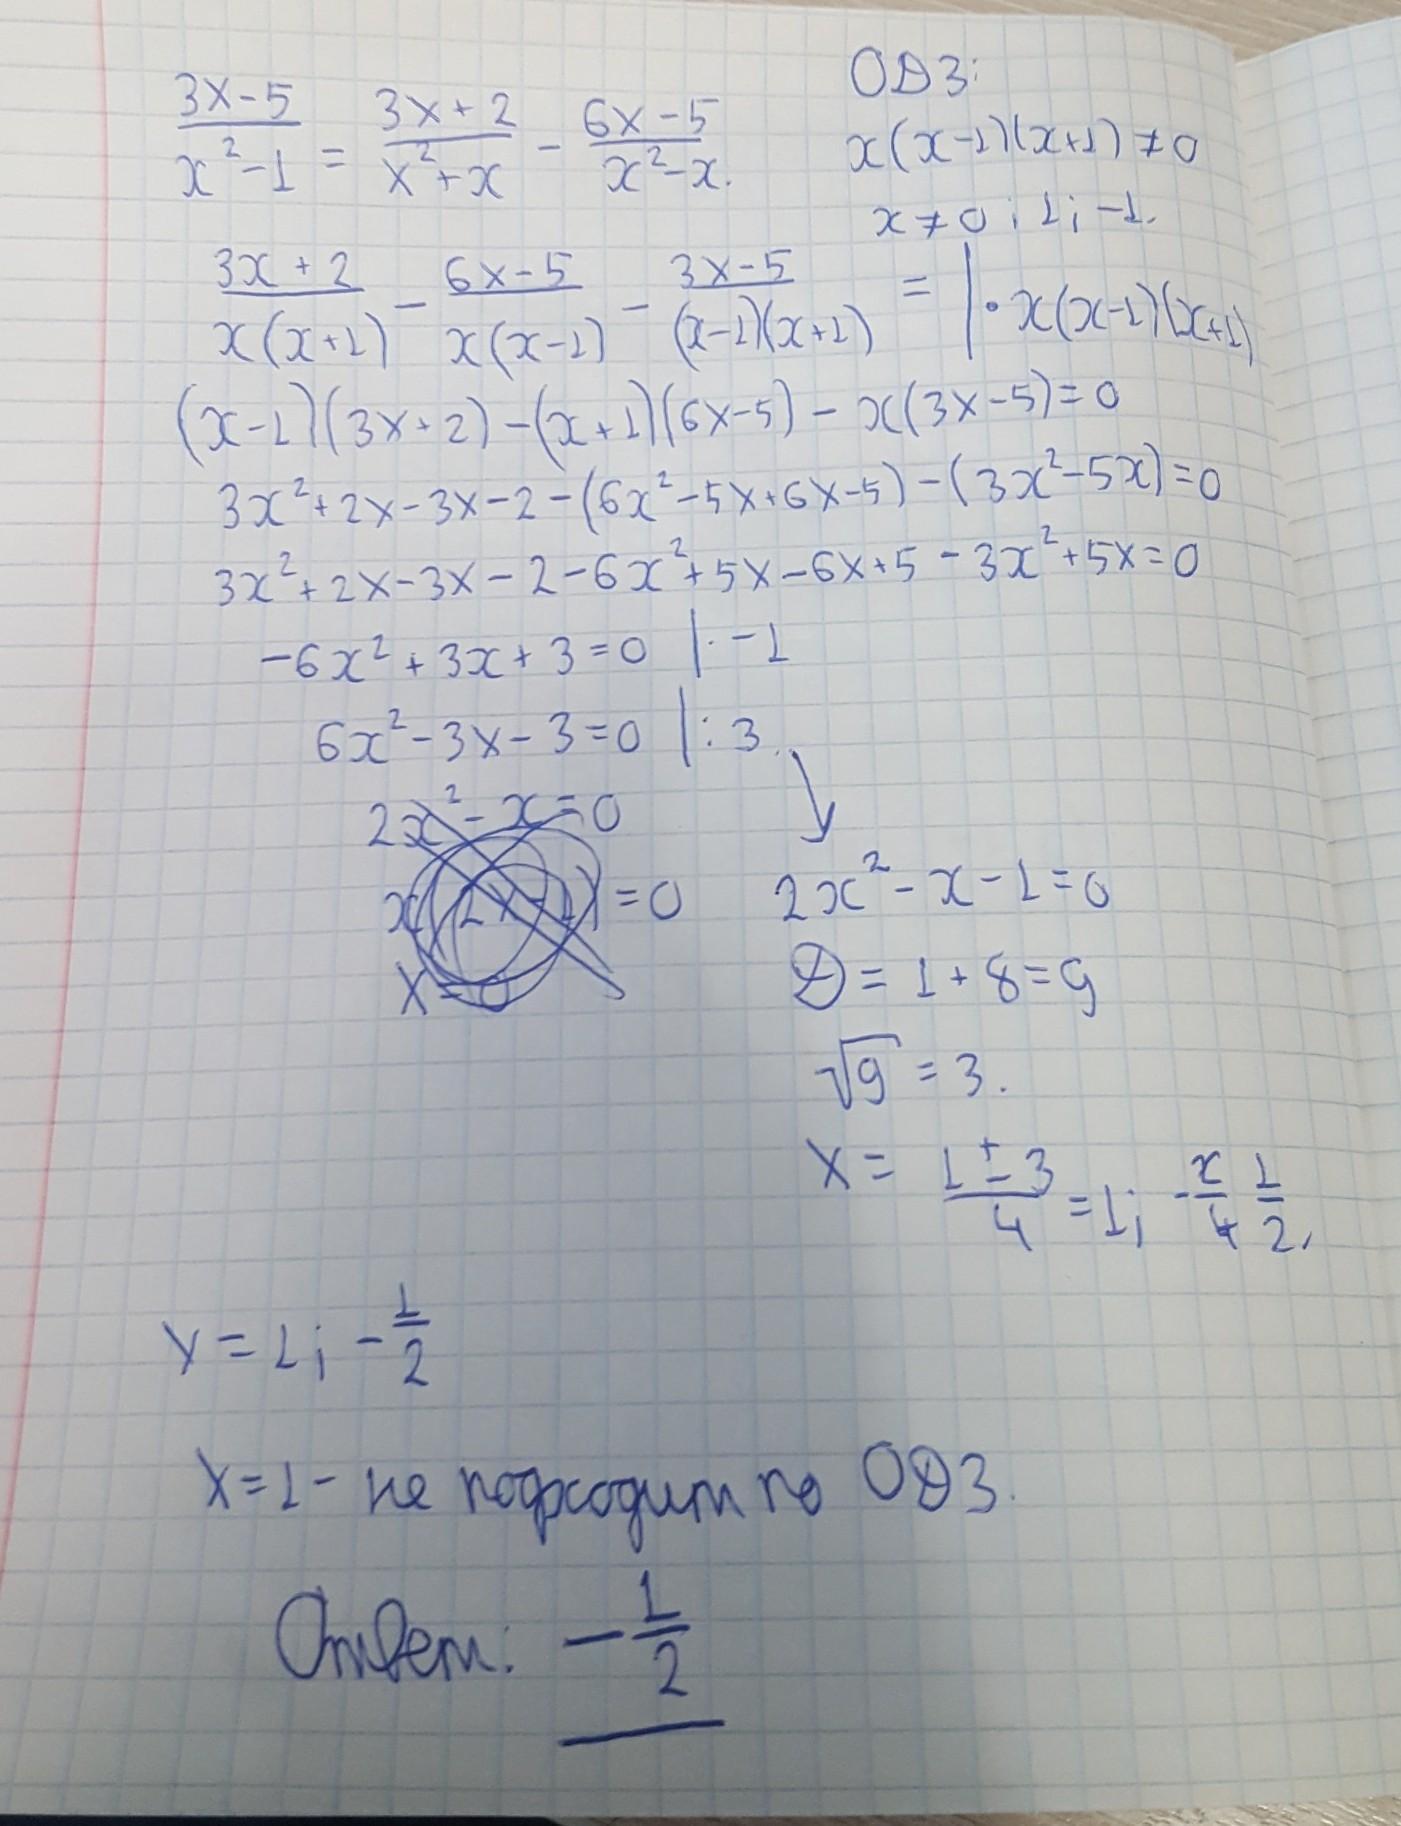 (3x-5)/(x²-1) = (3x+2)/(x²+x) - (6x-5)/(x²-x).
ОДЗ:
x(x-1)(x+1) ≠ 0
x ≠ 0; 1; -1.
(3x+2)/(x(x+1)) - (6x-5)/(x(x-1)) - (3x-5)/((x-1)(x+1)) = | · x(x-1)(x+1)
(x-1)(3x+2) - (x+1)(6x-5) - x(3x-5) = 0
3x² + 2x - 3x - 2 - (6x² - 5x + 6x - 5) - (3x² - 5x) = 0
3x² + 2x - 3x - 2 - 6x² + 5x - 6x + 5 - 3x² + 5x = 0
-6x² + 3x + 3 = 0 | · -1
6x² - 3x - 3 = 0 | : 3
2x² - x = 0
x(2x-1) = 0
x = 0
2x² - x - 1 = 0
D = 1 + 8 = 9
√9 = 3.
x = (1 ± 3)/4 = 1; - 1/2.
x = 1; - 1/2
x = 1 - не подходит по ОДЗ.
Ответ: - 1/2